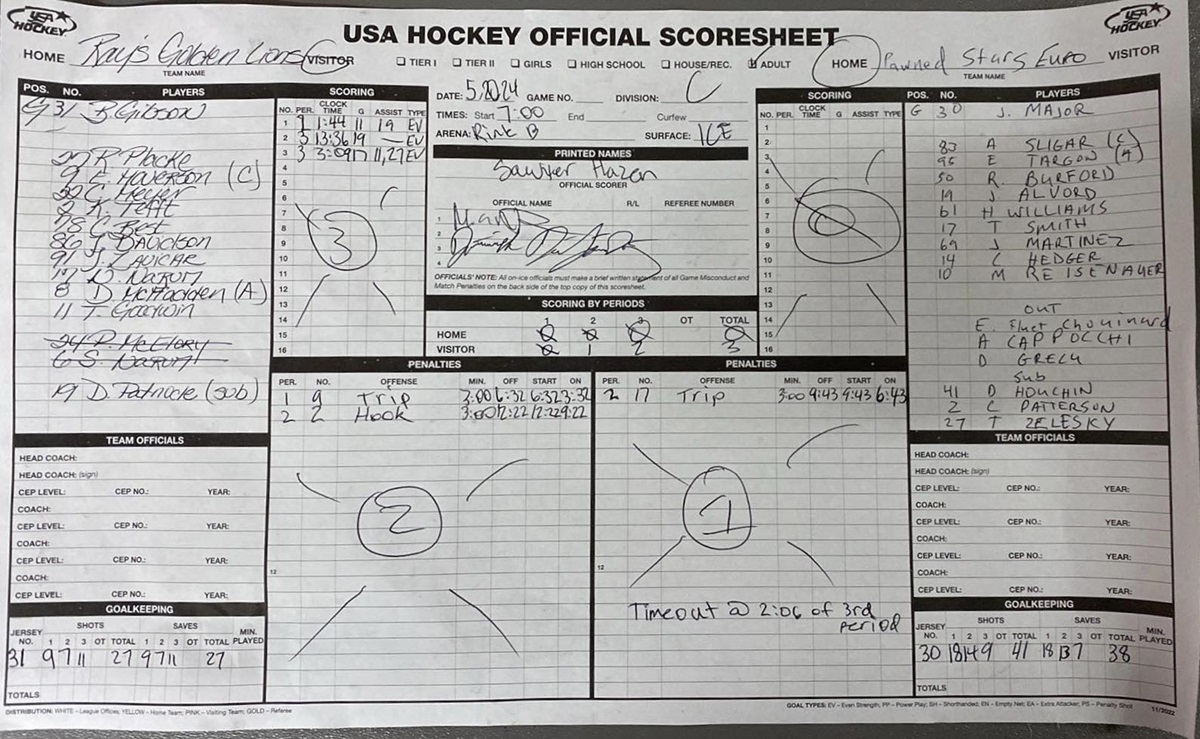 USA HOCKEY
USA HOCKEY OFFICIAL SCORESHEET
USA HOCKEY
HOME Ray's Golden Lions VISITOR
TEAM NAME
TIER I TIER II GIRLS HIGH SCHOOL HOUSE/REC. ADULT
HOME Pawned Stars Euro VISITOR
TEAM NAME
POS. NO. PLAYERS
G 31 B. Gibson
27 R. Placke
9 E. Haverson (C)
39 C. Hecker
2 K. Pettit
78 C. Best
86 J. Davidson
91 J. Zavicar
17 D. Narum
8 D. McFadden (A)
11 T. Goodwin
24 P. McElory
6 S. Narum
19 D. Patnode (sub)
SCORING
NO. PER. CLOCK TIME G ASSIST TYPE
1 1 11:44 11 19 EV
2 3 13:36 19 — EV
3 3 3:09 17 11,27 EV
4
5
6
7
8
9
10
11
12
13
14
15
16
3
DATE: 5.20.24 GAME NO. DIVISION: C
TIMES: Start 7:00 End Curfew
ARENA: Rink B SURFACE: ICE
PRINTED NAMES
Sawyer Hazen
OFFICIAL SCORER
OFFICIAL NAME R/L REFEREE NUMBER
1
2
3
4
OFFICIALS' NOTE: All on-ice officials must make a brief written statement of all Game Misconduct and
Match Penalties on the back side of the top copy of this scoresheet.
SCORING BY PERIODS
1 2 3 OT TOTAL
HOME 0 0 0 0
VISITOR 0 1 2 3
SCORING
NO. PER. CLOCK TIME G ASSIST TYPE
1
2
3
4
5
6
7
8
9
10
11
12
13
14
15
16
0
POS. NO. PLAYERS
G 30 J. MAJOR
83 A SLIGAR (C)
95 E TARGON (A)
50 R. BURFORD
19 J ALVORD
61 H WILLIAMS
17 T SMITH
69 J MARTINEZ
14 C HEDGER
10 M REISENAUER
OUT
E. Fluet Chouinard
A CAPPOCCHI
D GRECH
Sub
41 D HOUCHIN
2 C PATTERSON
27 T ZELESKY
PENALTIES
PER. NO. OFFENSE MIN. OFF START ON
1 9 Trip 3:00 6:32 6:32 3:32
2 2 Hook 3:00 12:22 12:22 9:22
12
2
PENALTIES
PER. NO. OFFENSE MIN. OFF START ON
2 17 Trip 3:00 9:43 9:43 6:43
12
1
Timeout @ 2:06 of 3rd
period
TEAM OFFICIALS
HEAD COACH:
HEAD COACH: (sign)
CEP LEVEL: CEP NO.: YEAR:
COACH:
CEP LEVEL: CEP NO.: YEAR:
COACH:
CEP LEVEL: CEP NO.: YEAR:
COACH:
CEP LEVEL: CEP NO.: YEAR:
GOALKEEPING
SHOTS SAVES
JERSEY NO. 1 2 3 OT TOTAL 1 2 3 OT TOTAL MIN. PLAYED
31 9 7 11 27 9 7 11 27
TOTALS
TEAM OFFICIALS
HEAD COACH:
HEAD COACH: (sign)
CEP LEVEL: CEP NO.: YEAR:
COACH:
CEP LEVEL: CEP NO.: YEAR:
COACH:
CEP LEVEL: CEP NO.: YEAR:
COACH:
CEP LEVEL: CEP NO.: YEAR:
GOALKEEPING
SHOTS SAVES
JERSEY NO. 1 2 3 OT TOTAL 1 2 3 OT TOTAL MIN. PLAYED
30 18 14 9 41 18 13 7 38
TOTALS
DISTRIBUTION: WHITE – League Offices, YELLOW – Home Team; PINK – Visiting Team; GOLD – Referee
GOAL TYPES: EV – Even Strength; PP – Power Play; SH – Shorthanded; EN – Empty Net; EA – Extra Attacker; PS – Penalty Shot
11/2022